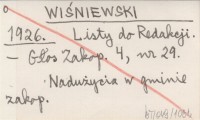 WIŚNIEWSKI
1926. Listy do Redakcji.
– Głos Zakop. 4, nr 29.
Nadużycia w gminie
zakop.